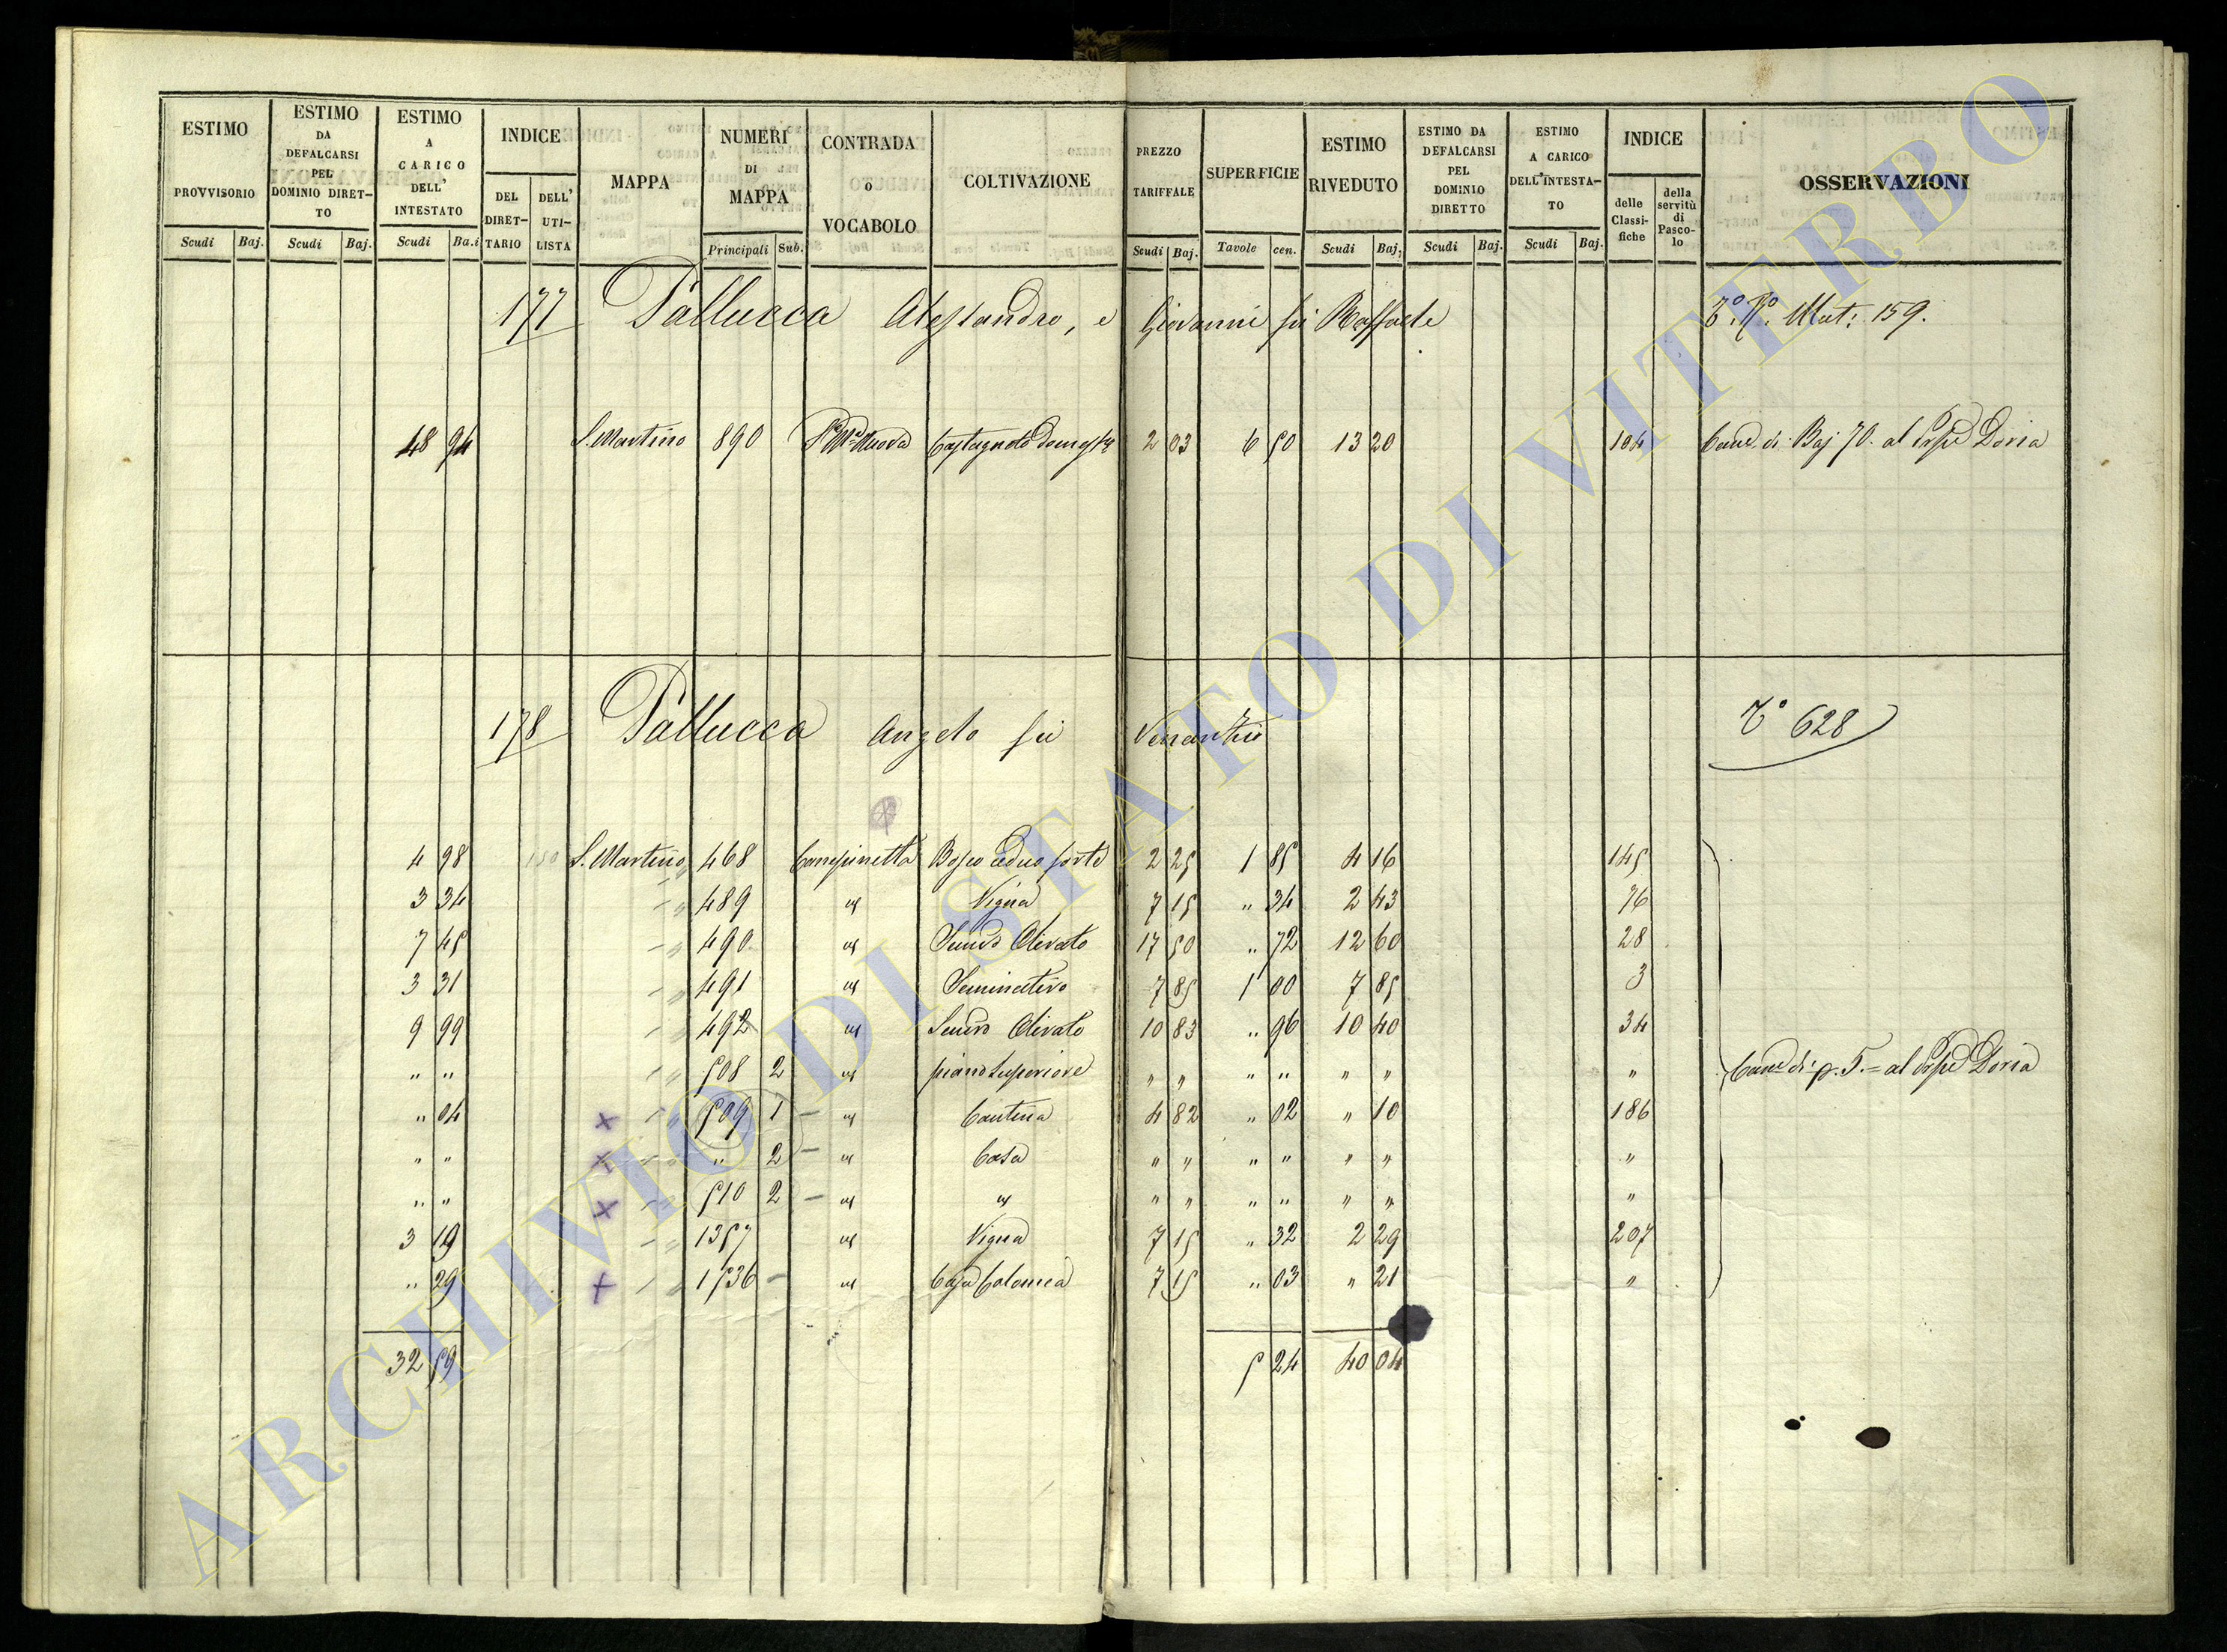 ESTIMO PROVVISORIO Scudi Baj. ESTIMO DA DEFALCARSI PEL DOMINIO DIRETTO Scudi Baj. ESTIMO A CARICO DELL' INTESTATO Scudi Ba.i INDICE DEL DIRETTARIO DELL' UTILISTA MAPPA NUMERI DI MAPPA Principali Sub. CONTRADA O VOCABOLO COLTIVAZIONE PREZZO TARIFFALE Scudi Baj. SUPERFICIE Tavole cen. ESTIMO RIVEDUTO Scudi Baj. ESTIMO DA DEFALCARSI PEL DOMINIO DIRETTO Scudi Baj. ESTIMO A CARICO DELL'INTESTATO Scudi Baj. INDICE delle Classifiche della servitù di Pascolo OSSERVAZIONI
177 Pallucca Alessandro, e Giovanni fu Raffaele Mut: 159.
48 94 S. Martino 890 Nuova Castagneto Domest 2 03 6 50 13 20 104 di Baj 70. al Doria
178 Pallucca Angelo fu Venanzio T° 628
4 98 130 S. Martino 468 Campinetta Bosco ceduo forte 2 25 1 85 4 16 145
3 34 " 489 Vigna 7 15 " 34 2 43 76
7 45 " 490 Semivo Olivato 17 50 " 72 12 60 28
3 31 " 491 Seminativo 7 85 1 00 7 85 3
9 99 " 492 Semivo Olivato 10 83 " 96 10 40 34
" " " 508 2 piano Superiore " " " " " " " di p. 5.= al Doria
" 04 x " 509 1 Cantina 4 82 " 02 " 10 186
" " x " " 2 Casa " " " " " " "
" " x " 510 2 " " " " " " "
3 19 " 1357 Vigna 7 15 " 32 2 29 207
" 29 x " 1536 Casa Colonica 7 15 " 03 " 21 "
32 59 5 24 40 04
ARCHIVIO DI STATO DI VITERBO